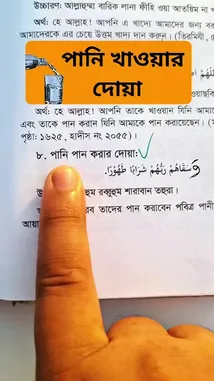 উচ্চারণ: আল্লাহুম্মা বারিক লানা ফীহি ওয়া আতয়িম না খ
অর্থ: হে আল্লাহ! আপনি এ খাদ্যে আমাদের জন্য বর
আমাদেরকে এর চেয়ে উত্তম খাদ্য দান করুন। (তিরমিযী,
পানি খাওয়ার
দোয়া
অর্থ: হে আল্লাহ! আপনি তাকে খাওয়ান যিনি আমাকে
এবং তাকে পান করান যিনি আমাকে পান করায়েছেন।
পৃষ্ঠা: ১৬২৫, হাদীস নং ২০৫৫)।
৮. পানি পান করার দোয়া:
وَسَقَاهُمْ رَبُّهُمْ شَرَابًا طَهُوْرًا.
হুম রব্বুহুম শারাবান তহুরা।
রব তাদের পান করাবেন পবিত্র পানী
আয়া